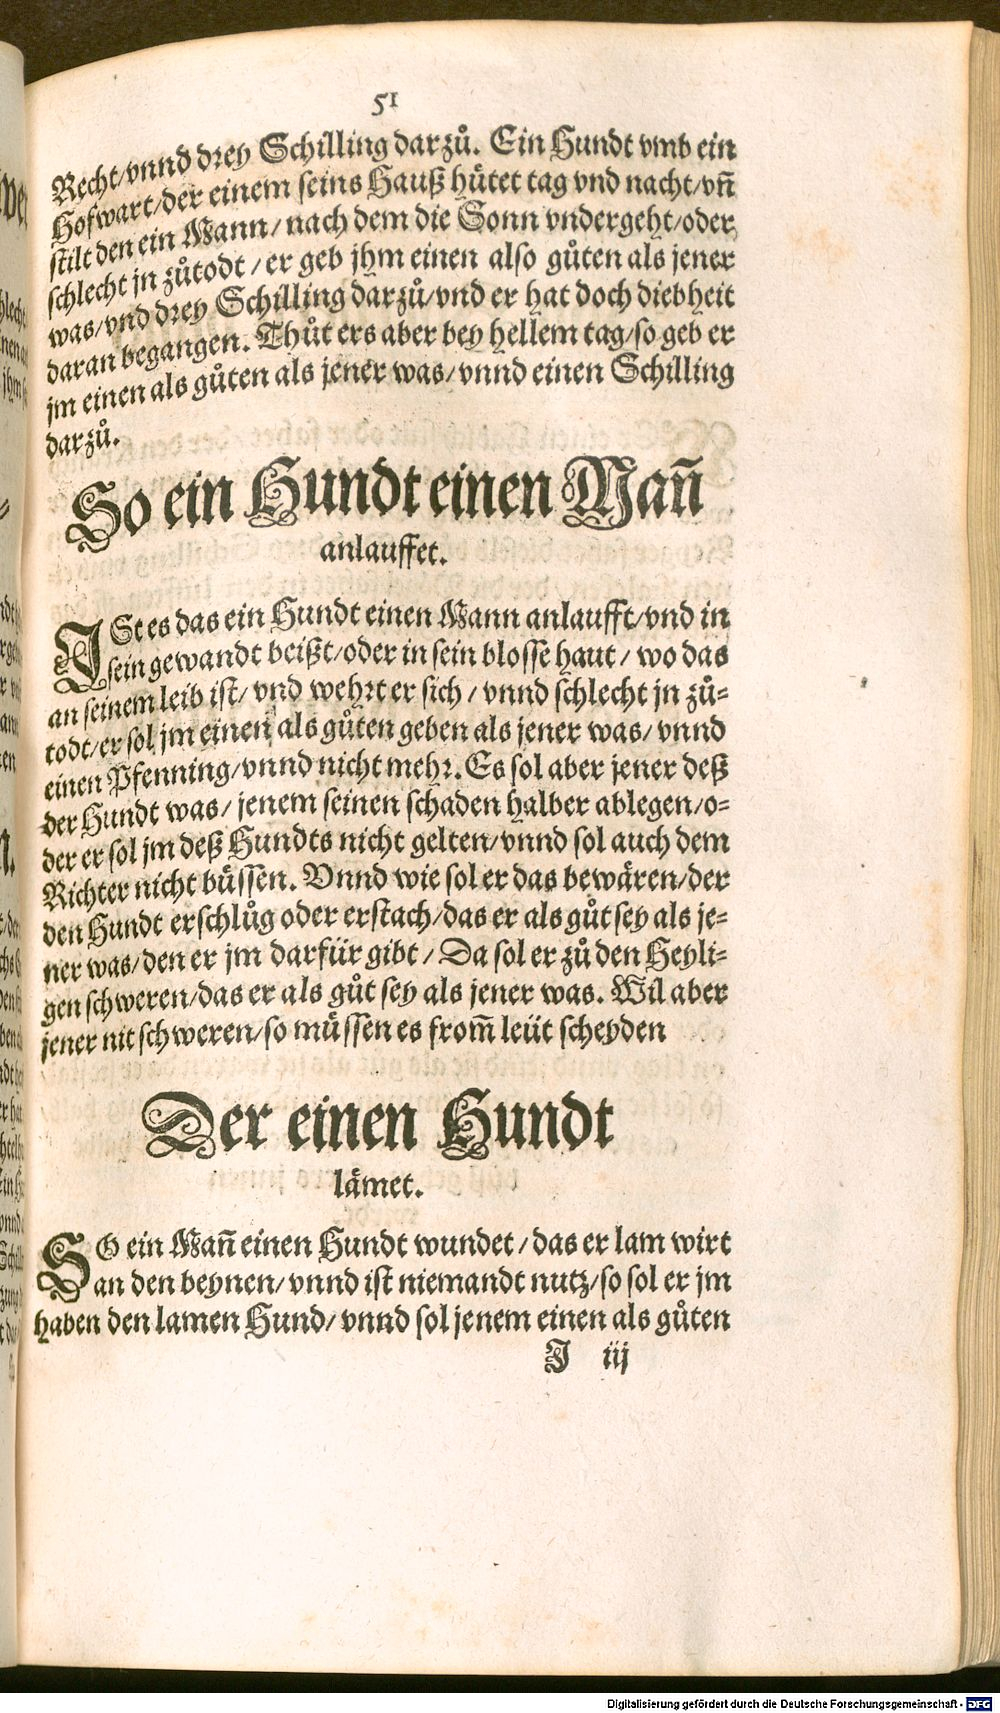 51
Recht/vnnd drey Schilling darzů. Ein Hundt vmb ein
Hofwart/der einem seins Hauß hütet tag vnd nacht/vn̄
stilt den ein Mann/nach dem die Sonn vndergeht/oder
schlecht jn zůtodt/er geb jhm einen also gůten als jener
was/vnd drey Schilling darzů/vnd er hat doch diebheit
daran begangen. Thůt ers aber bey hellem tag/so geb er
jm einen als gůten als jener was/vnnd einen Schilling
darzů.
So ein Hundt einen Man̄
anlauffet.
ISt es das ein Hundt einen Mann anlaufft/vnd in
sein gewandt beißt/oder in sein blosse haut/wo das
an seinem leib ist/vnd wehrt er sich/vnnd schlecht jn zů-
todt/er sol jm einen als gůten geben als jener was/vnnd
einen Pfenning/vnnd nicht mehr. Es sol aber jener deß
der Hundt was/jenem seinen schaden halber ablegen/o-
der er sol jm deß Hundts nicht gelten/vnnd sol auch dem
Richter nicht büssen. Vnnd wie sol er das bewären/der
den Hundt erschlůg oder erstach/das er als gůt sey als je-
ner was/den er jm darfür gibt/Da sol er zů den Heyli-
gen schweren/das er als gůt sey als jener was. Wil aber
jener nit schweren/so müssen es from̄ leüt scheyden
Der einen Hundt
lämet.
SO ein Man̄ einen Hundt wundet/das er lam wirt
an den beynen/vnnd ist niemandt nutz/so sol er jm
haben den lamen Hund/vnnd sol jenem einen als gůten
J iij
Digitalisierung gefördert durch die Deutsche Forschungsgemeinschaft - DFG